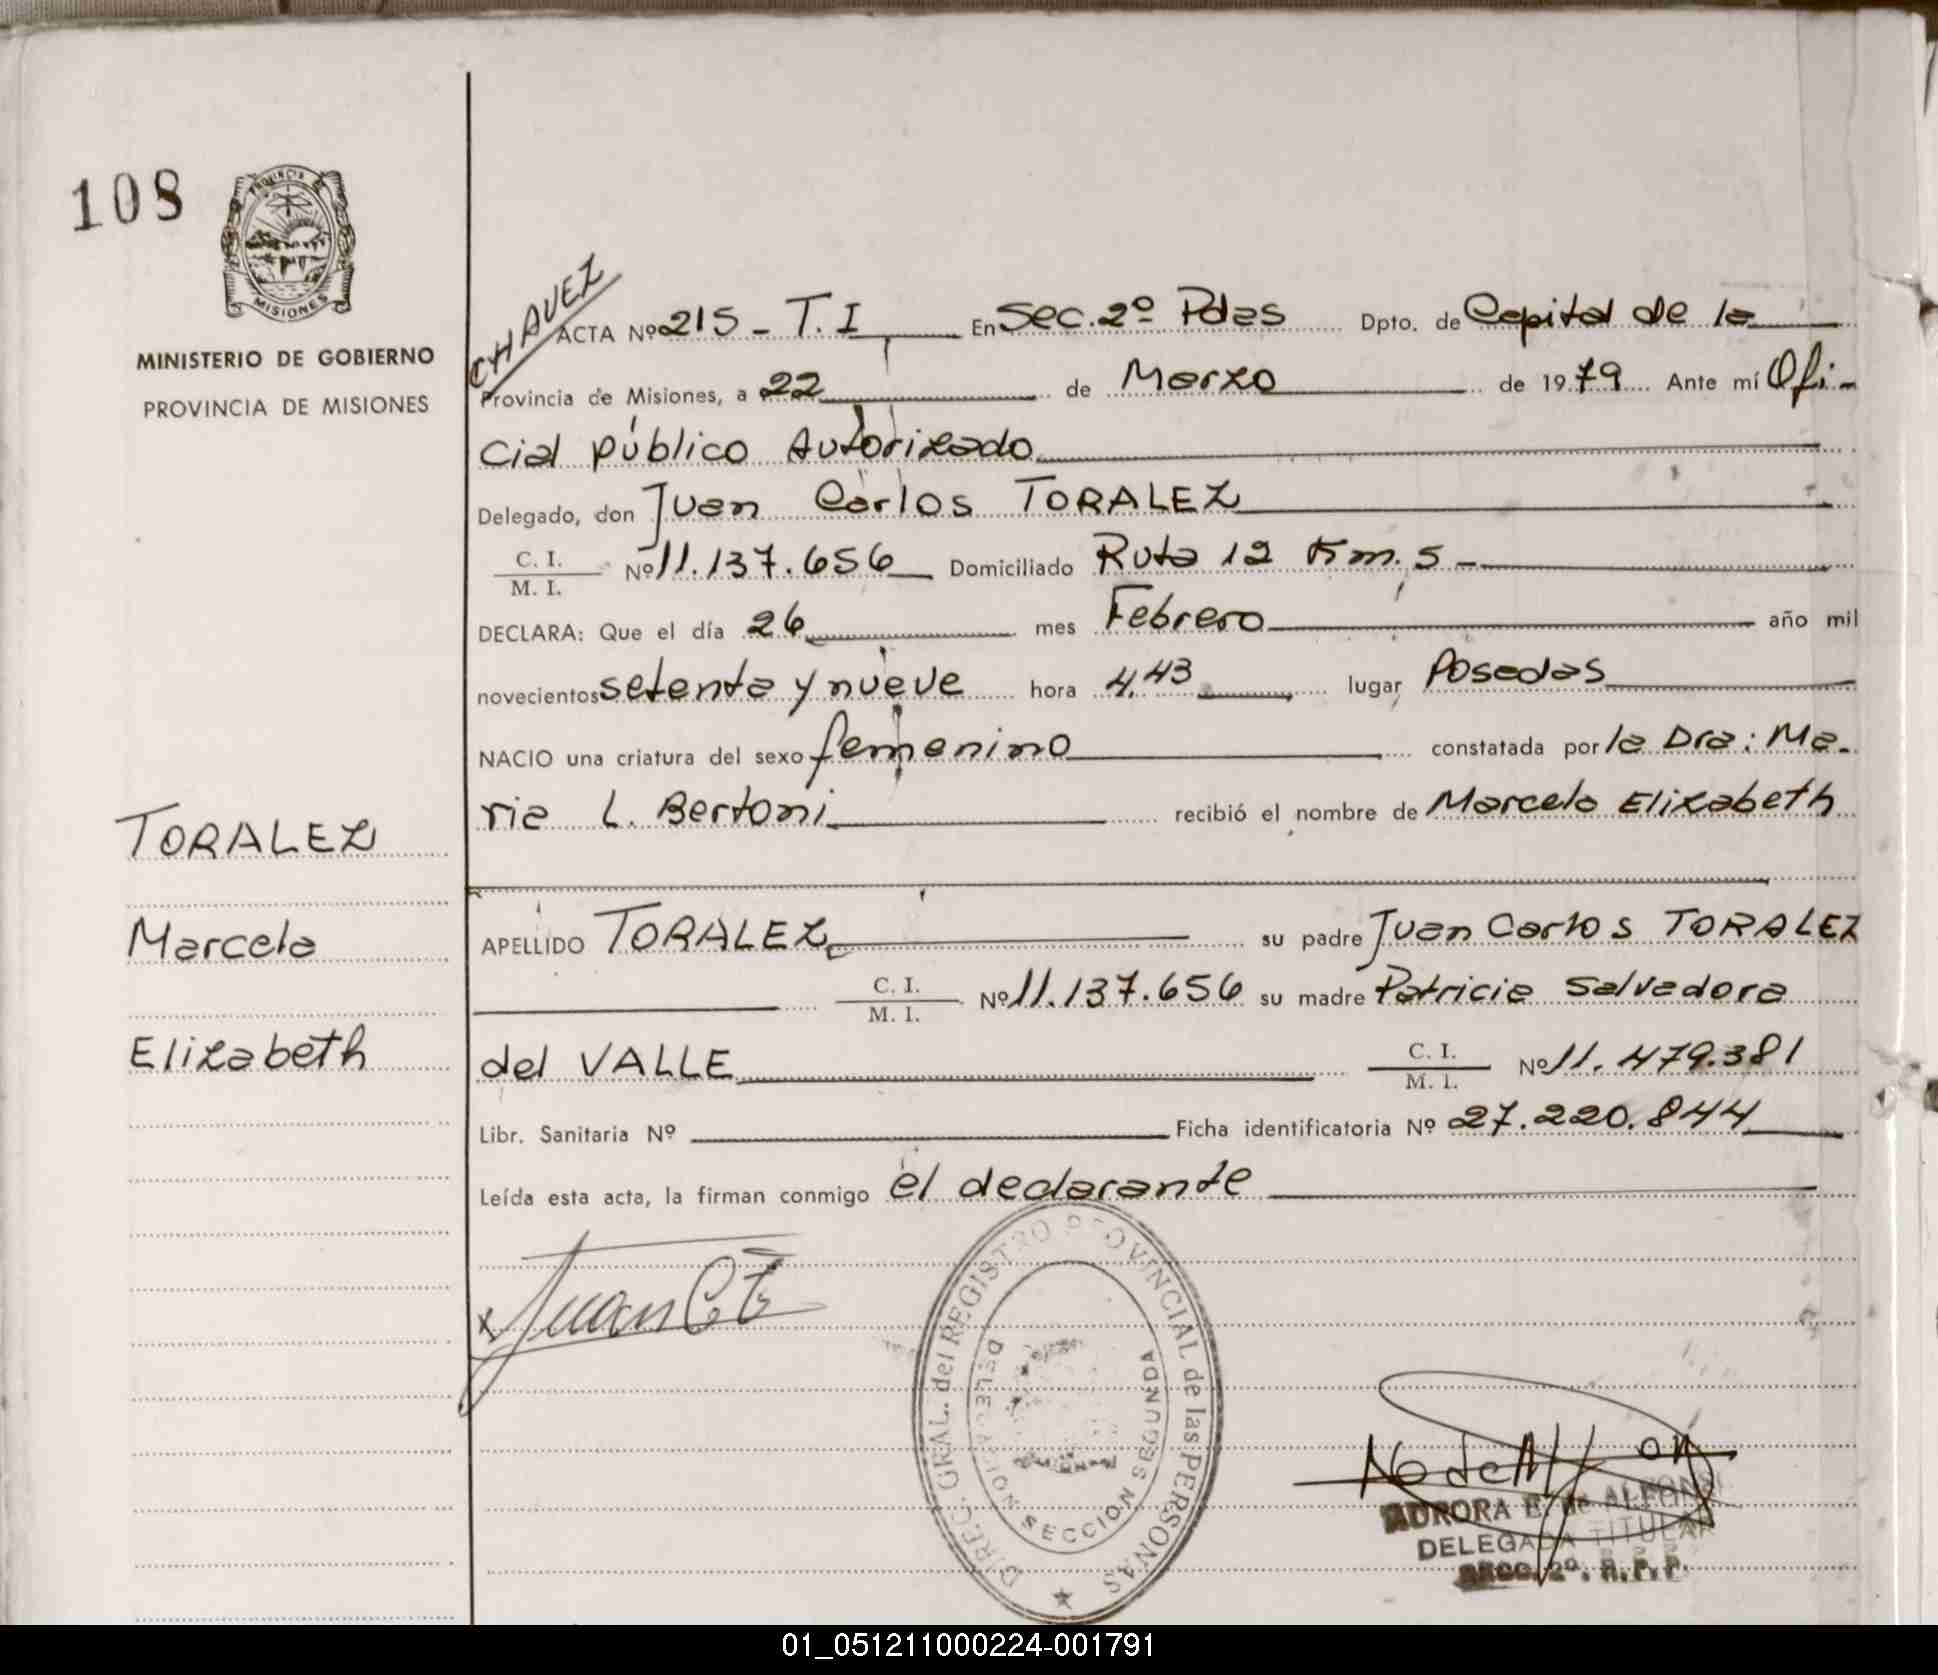 108
PROVINCIA DE
MISIONES
MINISTERIO DE GOBIERNO
PROVINCIA DE MISIONES
TORALEZ
Marcela
Elizabeth
CHAVEZ
ACTA Nº 215 - T.I En Sec. 2º Pdas Dpto. de Capital de la
Provincia de Misiones, a 22 de Marzo de 1979 Ante mí Ofi-
cial público Autorizado
Delegado, don Juan Carlos TORALEZ
C. I.
M. I. Nº 11.137.656 Domiciliado Ruta 12 Km. 5 -
DECLARA: Que el día 26 mes Febrero año mil
novecientos setenta y nueve hora 4,43 lugar Posadas
NACIO una criatura del sexo femenino constatada por la Dra: Ma-
ria L. Bertoni recibió el nombre de Marcela Elizabeth
APELLIDO TORALEZ su padre Juan Carlos TORALEZ
C. I.
M. I. Nº 11.137.656 su madre Patricia Salvadora
del VALLE C. I.
M. I. Nº 11.479.381
Libr. Sanitaria Nº Ficha identificatoria Nº 27.220.844
Leída esta acta, la firman conmigo el declarante
x Juan C T
DIREC. GRAL. del REGISTRO PROVINCIAL de las PERSONAS
DELEGACION SECCION SEGUNDA
AURORA E. de ALFONSI
DELEGADA TITULAR
SECC. 2º. R.P.P.
01_051211000224-001791